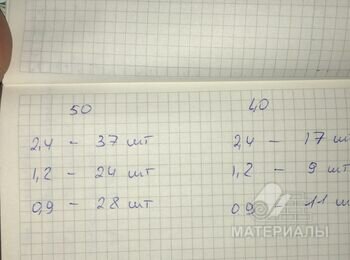 50
2,4 - 37 шт
1,2 - 24 шт
0,9 - 28 шт
40
2,4 - 17 ш
1,2 - 9 шт
0,9 11 ш
МАТЕРИАЛЫ